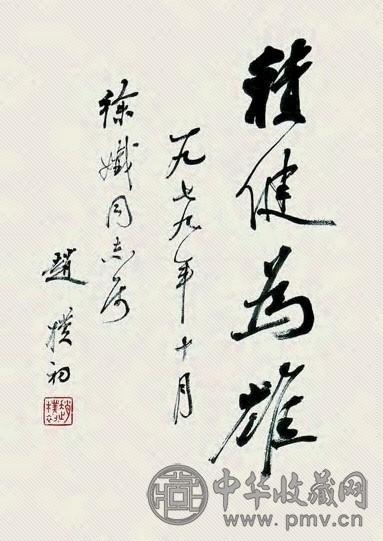 積健為雄
一九七九年十月
徐孅同志属
趙樸初
中华收藏网
www.pmv.cn